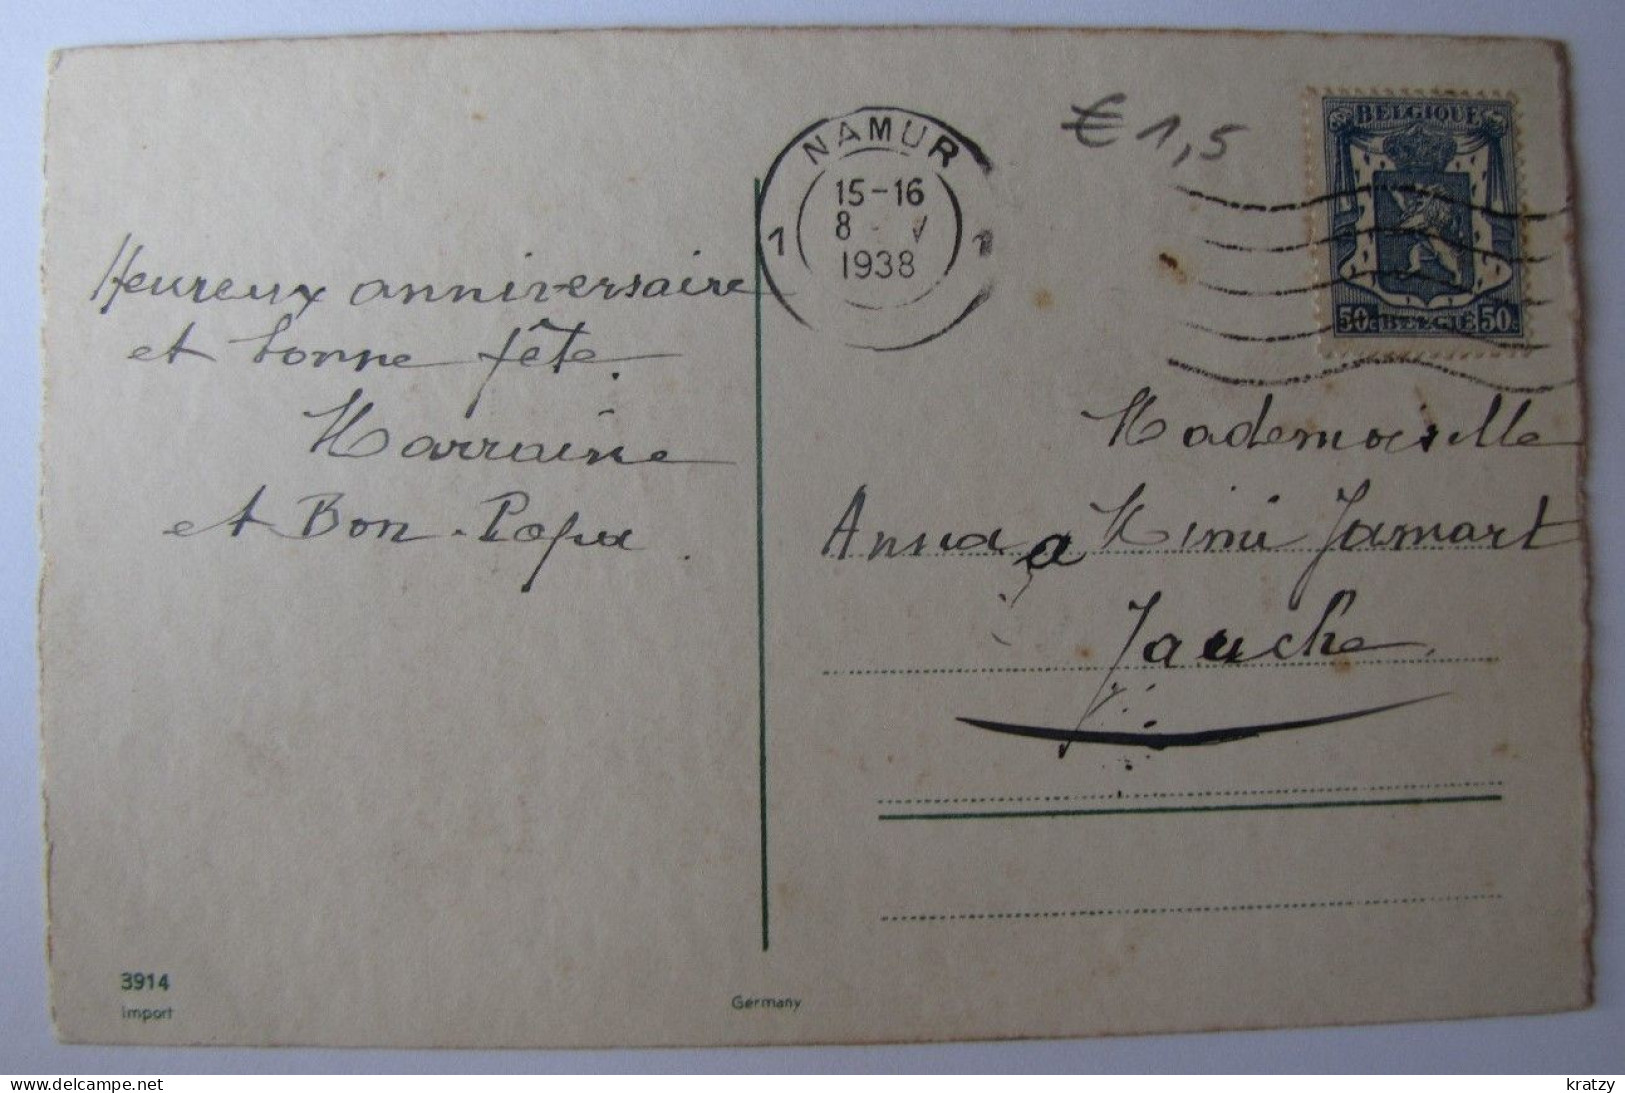 € 1,5
BELGIQUE
50c BELGIË 50c
NAMUR
15-16
8 V
1 1938 1
Heureux anniversaire
et bonne fête.
Marraine
et Bon-Papa.
Mademoiselle
Anna Mimi Jamart
Jauche.
3914
Import
Germany
delcampe.net
kratzy